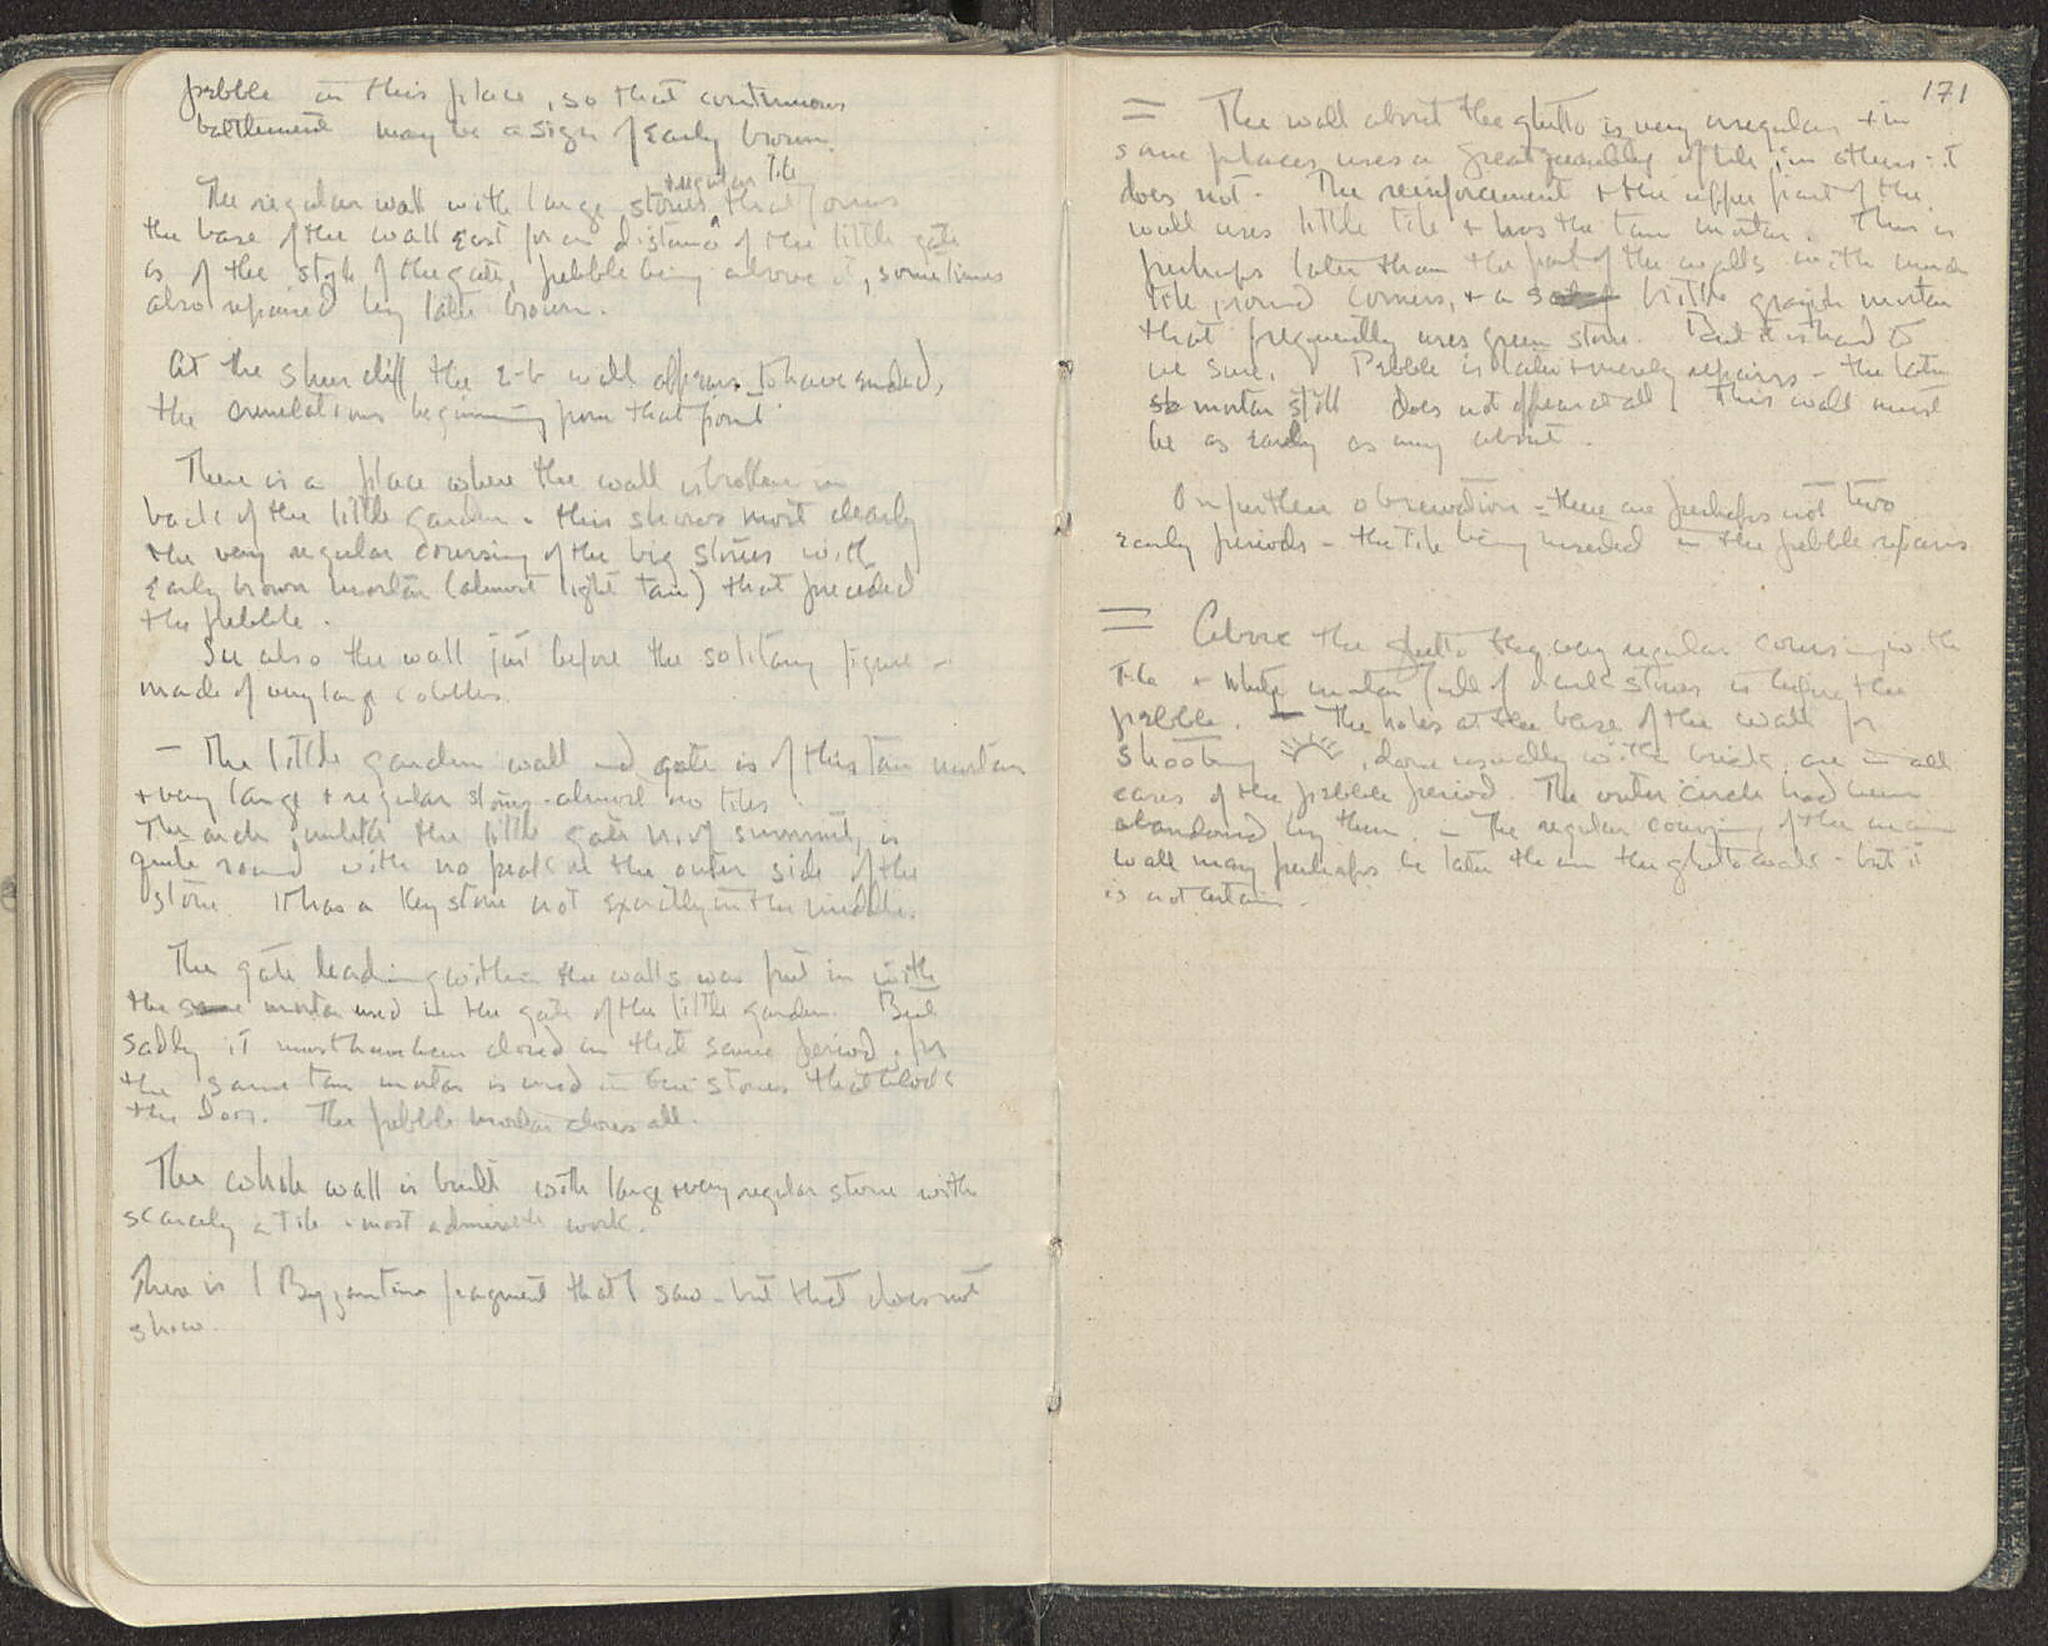 pebble in this place, so that continuous
battlement may be a sign of early brown.
+ regular tile
The regular wall with large stones ^ that forms
the base of the wall east for a distance of the little gate
is of the style of the gate, pebble being above it, sometimes
also repaired by later brown.
At the sheer cliff the e-b wall appears to have ended,
the crenelations beginning from that point
There is a place where the wall is broken in
back of the little garden - this shows most clearly
the very regular coursing of the big stones with
early brown mortar (almost light tan) that preceded
the pebble.
See also the wall just before the solitary figure -
made of very large cobbles.
- The little garden wall and gate is of this tan mortar
+ very large + regular stones - almost no tiles
The arch, unlike the little gate n. of summit, is
quite round with no peak at the outer side of the
stone. It has a Keystone not exactly in the middle.
The gate leading within the walls was put in with
the same mortar used in the gate of the little garden. But
sadly it must have been closed in that same period, for
the same tan mortar is used in the stones that block
the door. The pebble mortar closes all.
The whole wall is built with large + very regular stone with
scarcely a tile - most admirable work.
There is 1 Byzantine fragment that I saw - but that does not
show.
171
= The wall about the ghetto is very irregular + in
some places uses a great quantity of tile, in others it
does not. The reinforcement + the upper part of the
wall uses little tile + has the tan mortar. This is
perhaps later than the part of the walls with much
tile, round corners, + a brittle grayish mortar
that frequently uses green stone. But it is hard to
be sure. Pebble is later + merely repairs - the later
mortar still does not appear at all. This wall must
be as early as any about.
On further observation - there are perhaps not two
early periods - the tile being needed in the pebble repairs
= Above the ghetto the very regular coursing with
tile + white mortar full of dark stones is before the
pebble. - The holes at the base of the wall for
shooting , done usually with brick, are in all
cases of the pebble period. The outer circle had been
abandoned by then. - The regular coursing of the main
wall may perhaps be later than the ghetto walls - but it
is not certain.